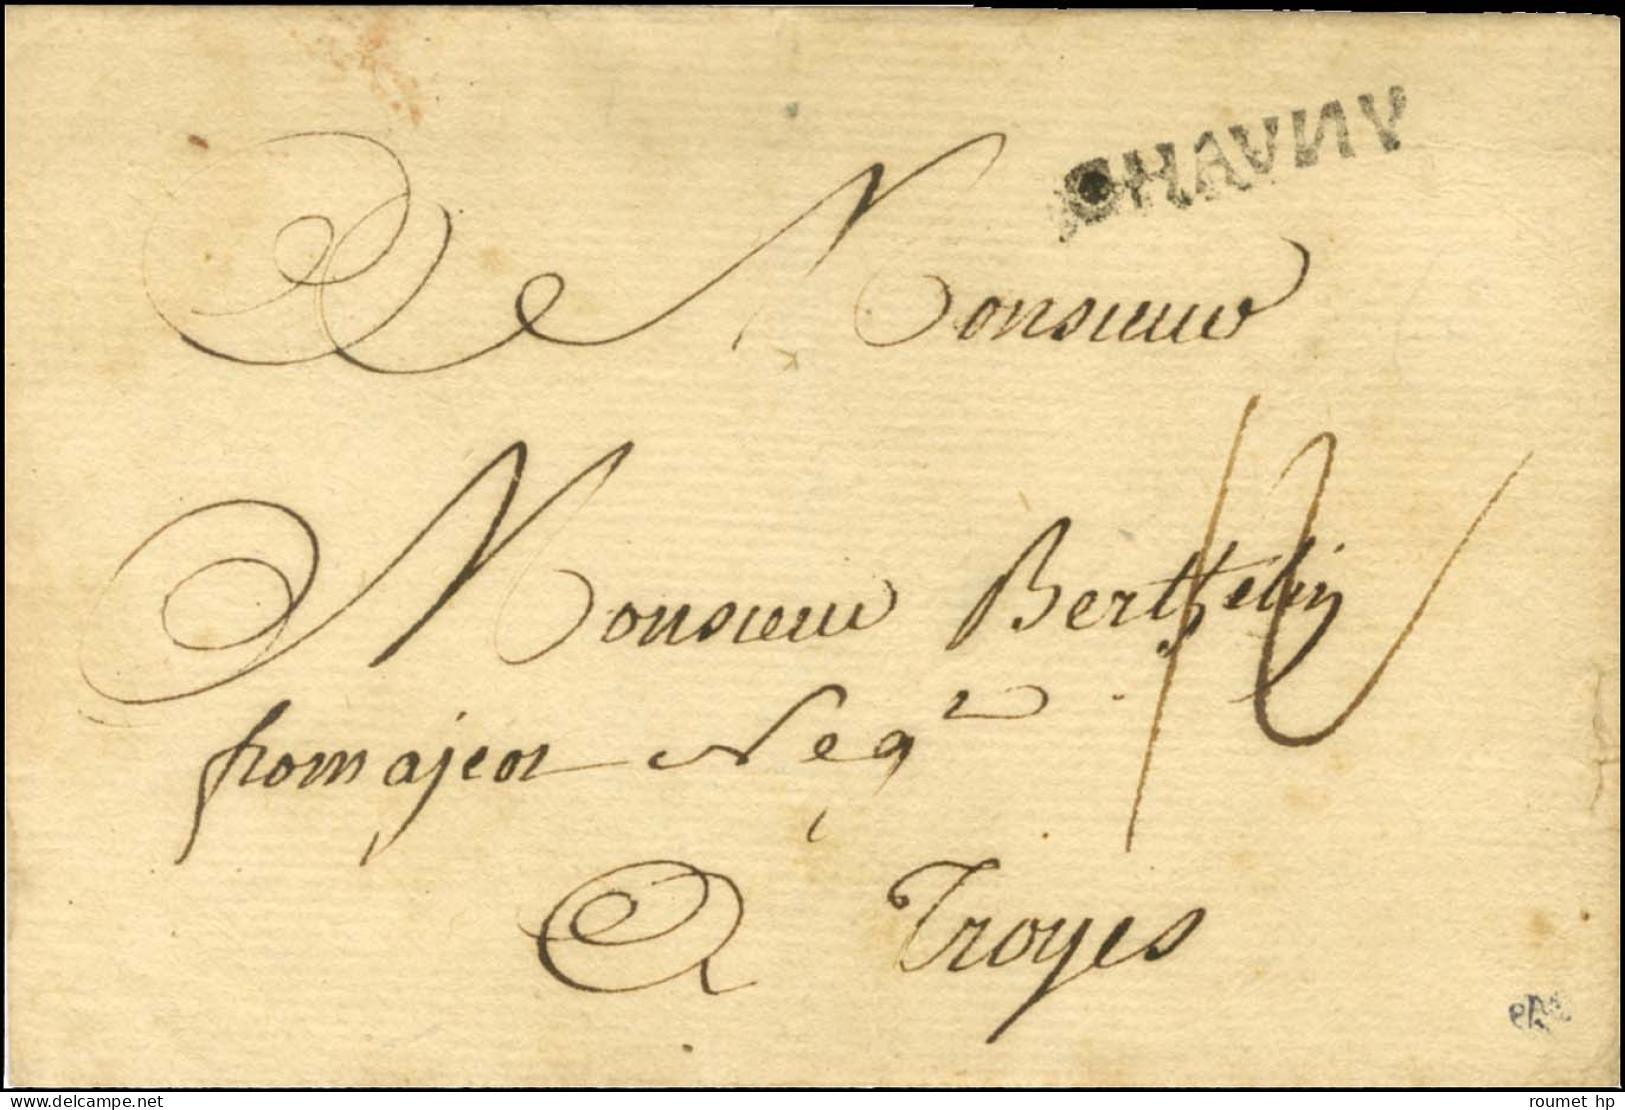 CHAVNY
Monsieur
Monsieur Berthelin
fromajeot Neg.r
12
A Troyes
delcampe.net
roumet hp